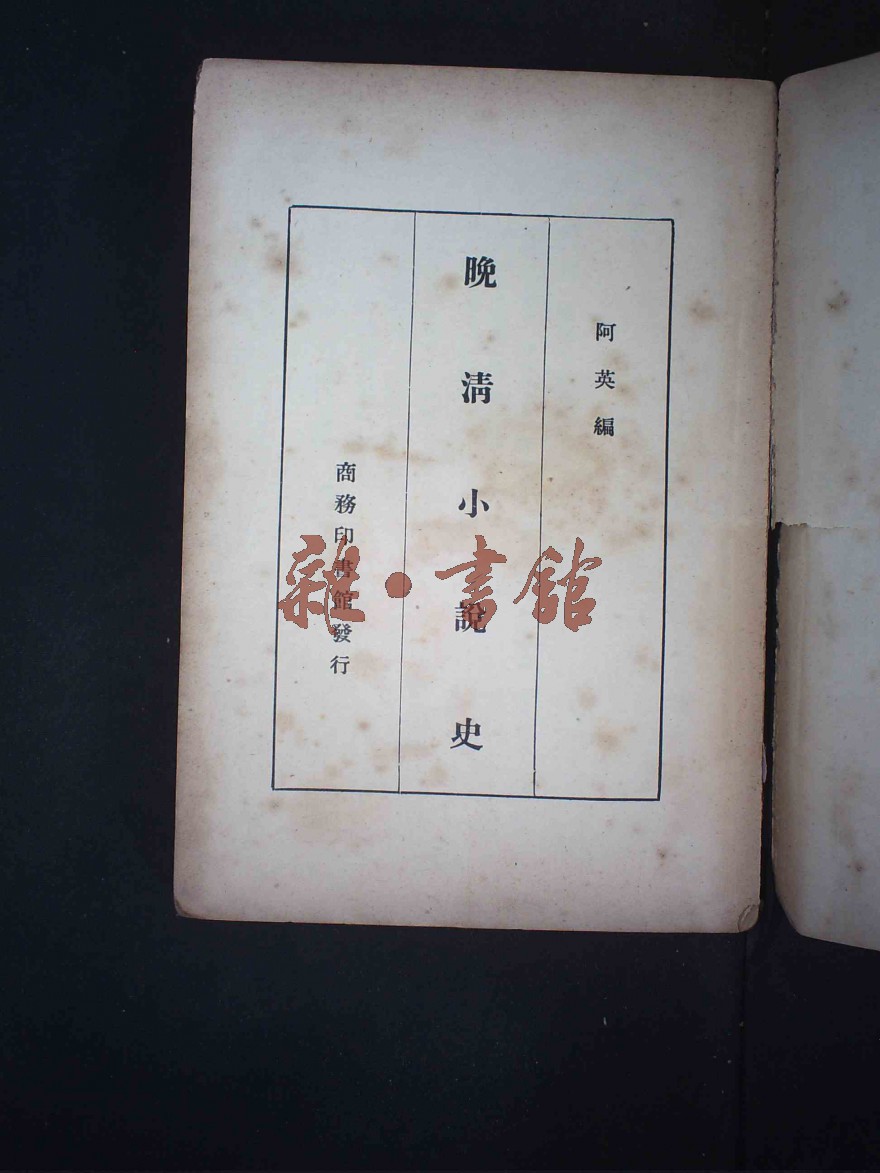 阿英編
晚清小說史
商務印書館發行
雜·書館